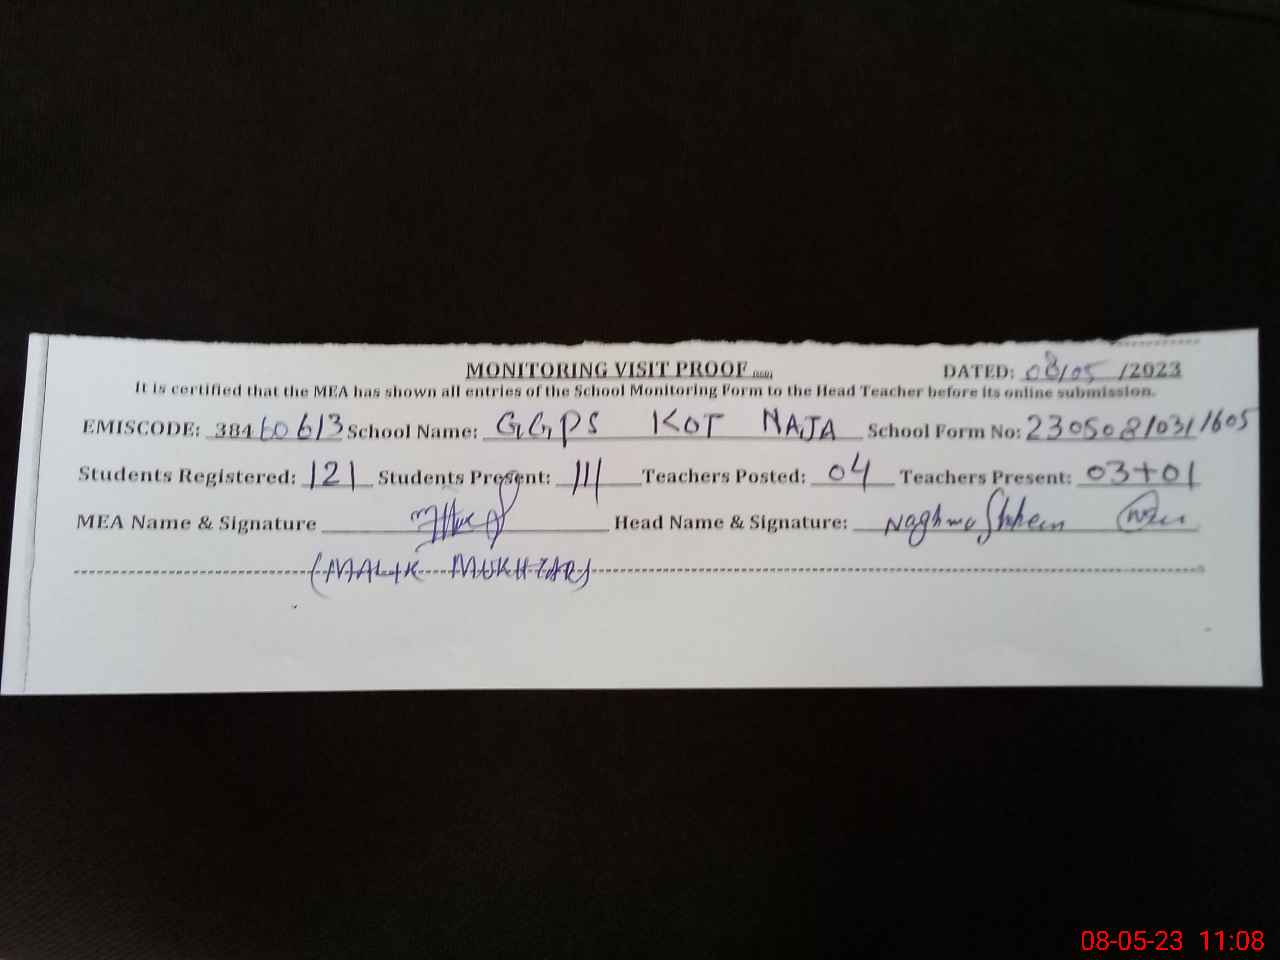 MONITORING VISIT PROOF DATED: 08/05/2023
It is certified that the MEA has shown all entries of the School Monitoring Form to the Head Teacher before its online submission.
EMISCODE: 38460613 School Name: GGPS KOT NAJA School Form No: 23050810311605
Students Registered: 121 Students Present: 111 Teachers Posted: 04 Teachers Present: 03+01
MEA Name & Signature Head Name & Signature: Naghma Shaheen
(MALIK MUKHTAR)
08-05-23 11:08